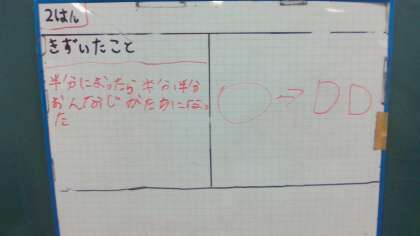 2はん
きずいたこと
半分におったら半分半分
おんなじかたちになっ
た